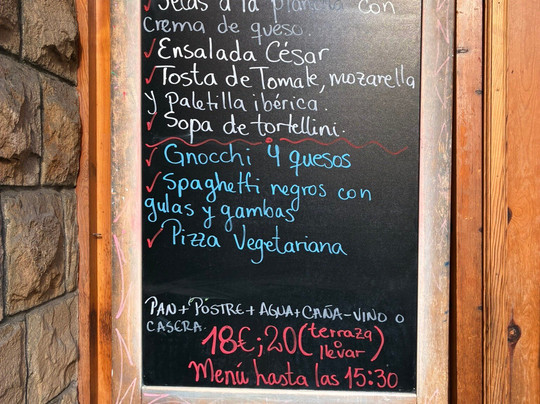 ✓Setas a la plancha con
crema de queso.
✓Ensalada César
✓Tosta de Tomate, mozarella
y paletilla ibérica.
✓Sopa de tortellini.
✓Gnocchi 4 quesos
✓Spaghetti negros con
gulas y gambas
✓Pizza Vegetariana
PAN+POSTRE+AGUA+CAÑA-VINO O
CASERA.
18€;20(terraza o llevar)
Menú hasta las 15:30